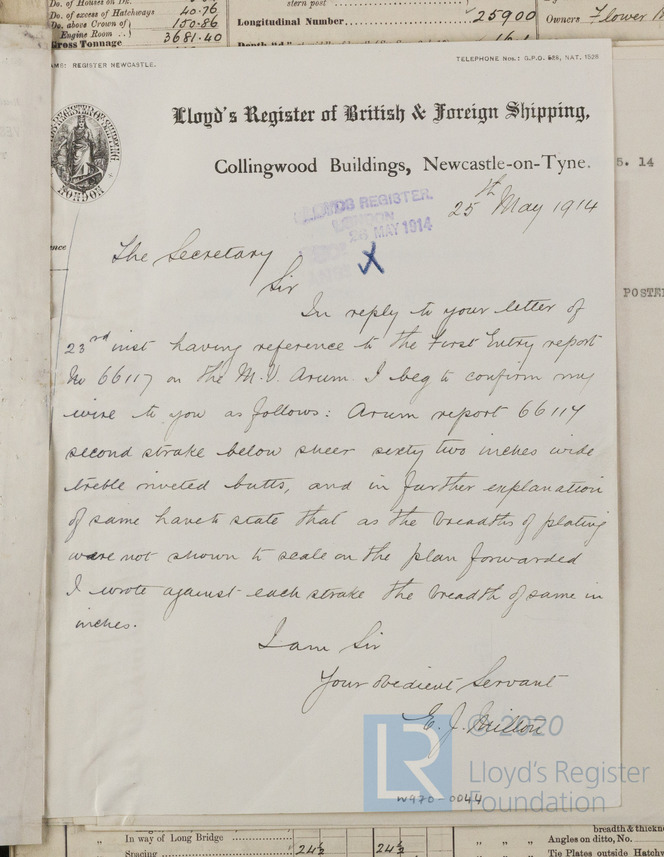 Do. of Houses on Dk.
Do. of excess of Hatchways 40.76
Do. above Crown of Engine Room .. 150.86
Gross Tonnage 3681.40
stern post
Longitudinal Number 25900
Owners Flower
REGISTER NEWCASTLE.
TELEPHONE Nos.: G.P.O. 528, NAT. 1529
Lloyd's Register of British & Foreign Shipping,
Collingwood Buildings, Newcastle-on-Tyne.
LLOYDS REGISTER.
LONDON
26 MAY 1914
25th May 1914
5. 14
The Secretary
Sir
In reply to your letter of
23rd inst having reference to the First Entry report
No 66117 on the M.V. Arum I beg to confirm my
wire to you as follows: Arum report 66117
second strake below sheer sixty two inches wide
treble riveted butts, and in further explanation
of same have to state that as the breadths of plating
were not shown to scale on the plan forwarded
I wrote against each strake the breadth of same in
inches.
I am Sir
Your obedient Servant
E. J.
© 2020
LR
Lloyd's Register
Foundation
W970-0044
In way of Long Bridge
Spacing 24½ 24½
breadth & thickne
Angles on ditto, No.
Tie Plates outside Hatchw